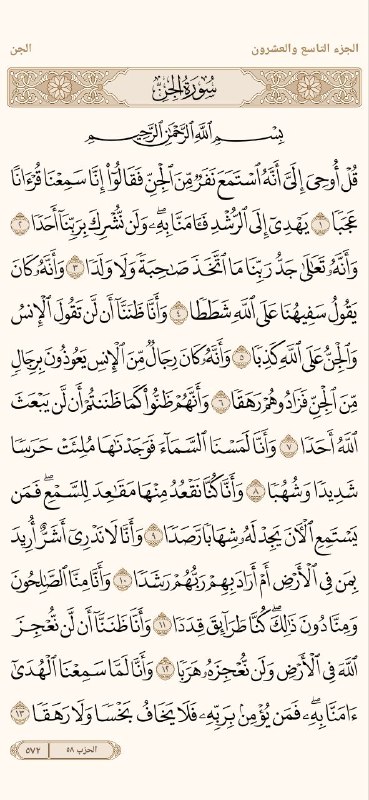 الجزء التاسع والعشرون
الجن
سُورَةُ الجِنِّ
بِسْمِ اللَّهِ الرَّحْمَٰنِ الرَّحِيمِ
قُلْ أُوحِيَ إِلَيَّ أَنَّهُ ٱسْتَمَعَ نَفَرٌ مِّنَ ٱلْجِنِّ فَقَالُوٓا۟ إِنَّا سَمِعْنَا قُرْءَانًا
عَجَبًا ١ يَهْدِىٓ إِلَى ٱلرُّشْدِ فَـَٔامَنَّا بِهِۦ ۖ وَلَن نُّشْرِكَ بِرَبِّنَآ أَحَدًا ٢
وَأَنَّهُۥ تَعَٰلَىٰ جَدُّ رَبِّنَا مَا ٱتَّخَذَ صَٰحِبَةً وَلَا وَلَدًا ٣ وَأَنَّهُۥ كَانَ
يَقُولُ سَفِيهُنَا عَلَى ٱللَّهِ شَطَطًا ٤ وَأَنَّا ظَنَنَّآ أَن لَّن تَقُولَ ٱلْإِنسُ
وَٱلْجِنُّ عَلَى ٱللَّهِ كَذِبًا ٥ وَأَنَّهُۥ كَانَ رِجَالٌ مِّنَ ٱلْإِنسِ يَعُوذُونَ بِرِجَالٍ
مِّنَ ٱلْجِنِّ فَزَادُوهُمْ رَهَقًا ٦ وَأَنَّهُمْ ظَنُّوا۟ كَمَا ظَنَنتُمْ أَن لَّن يَبْعَثَ
ٱللَّهُ أَحَدًا ٧ وَأَنَّا لَمَسْنَا ٱلسَّمَآءَ فَوَجَدْنَٰهَا مُلِئَتْ حَرَسًا
شَدِيدًا وَشُهُبًا ٨ وَأَنَّا كُنَّا نَقْعُدُ مِنْهَا مَقَٰعِدَ لِلسَّمْعِ ۖ فَمَن
يَسْتَمِعِ ٱلْـَٔانَ يَجِدْ لَهُۥ شِهَابًا رَّصَدًا ٩ وَأَنَّا لَا نَدْرِىٓ أَشَرٌّ أُرِيدَ
بِمَن فِى ٱلْأَرْضِ أَمْ أَرَادَ بِهِمْ رَبُّهُمْ رَشَدًا ١٠ وَأَنَّا مِنَّا ٱلصَّٰلِحُونَ
وَمِنَّا دُونَ ذَٰلِكَ ۖ كُنَّا طَرَآئِقَ قِدَدًا ١١ وَأَنَّا ظَنَنَّآ أَن لَّن نُّعْجِزَ
ٱللَّهَ فِى ٱلْأَرْضِ وَلَن نُّعْجِزَهُۥ هَرَبًا ١٢ وَأَنَّا لَمَّا سَمِعْنَا ٱلْهُدَىٰٓ
ءَامَنَّا بِهِۦ ۖ فَمَن يُؤْمِنۢ بِرَبِّهِۦ فَلَا يَخَافُ بَخْسًا وَلَا رَهَقًا ١٣
الحزب ٥٨ ٥٧٢